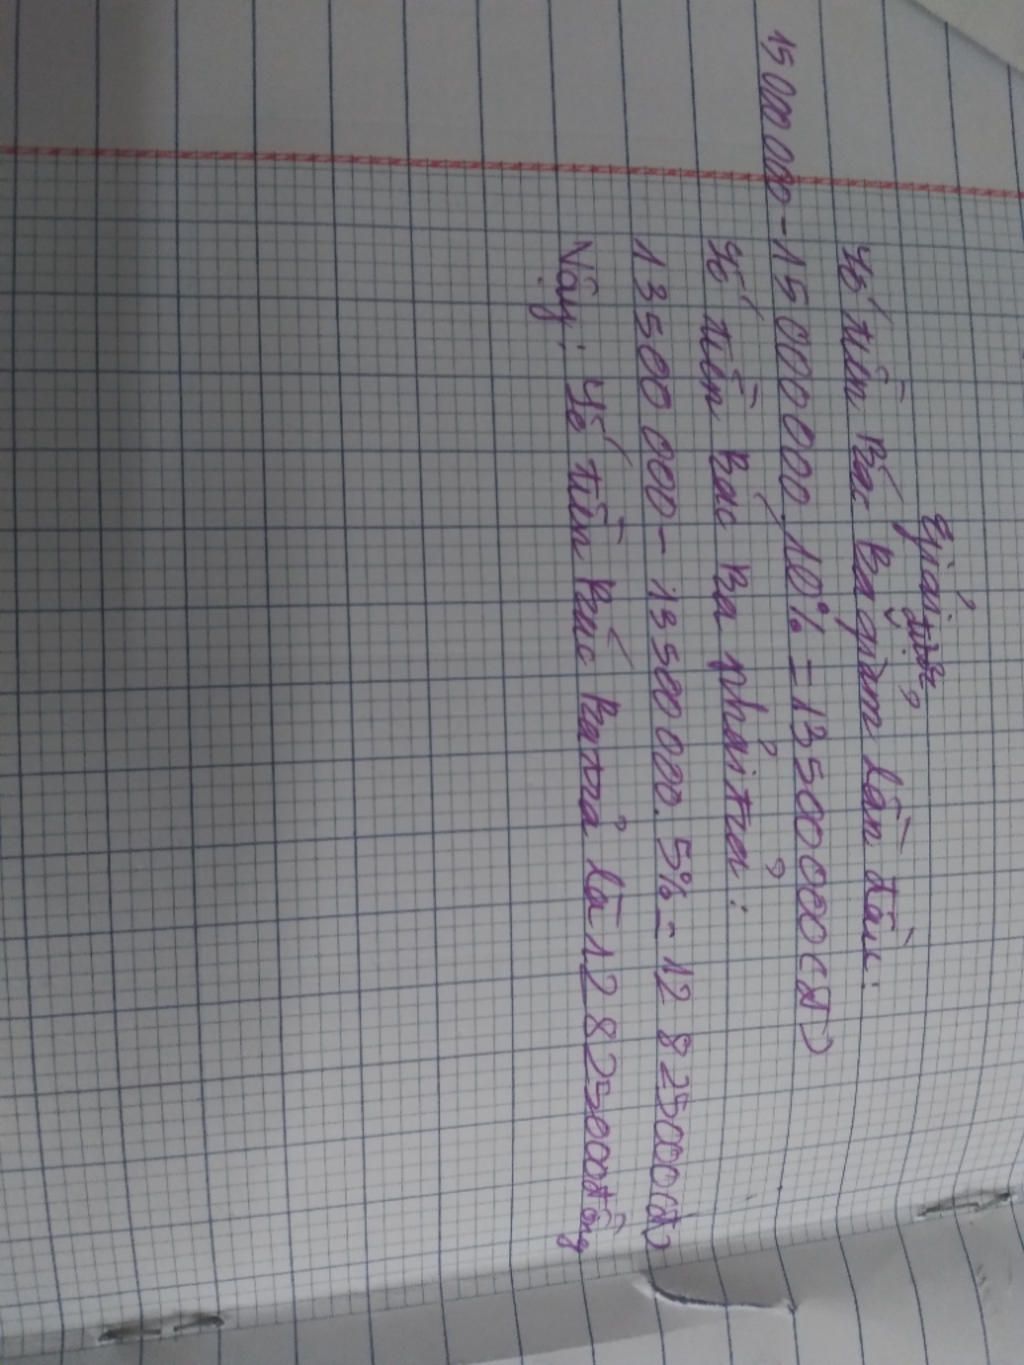 Giải:
Số tiền Bác Ba giảm lần đầu:
15 000 000 - 15 000 000 . 10% = 13500 000 (đ)
Số tiền Bác Ba phải trả:
13500 000 - 13500 000 . 5% = 12 825000 (đ)
Vậy: Số tiền Bác Ba trả là 12 825000 đồng